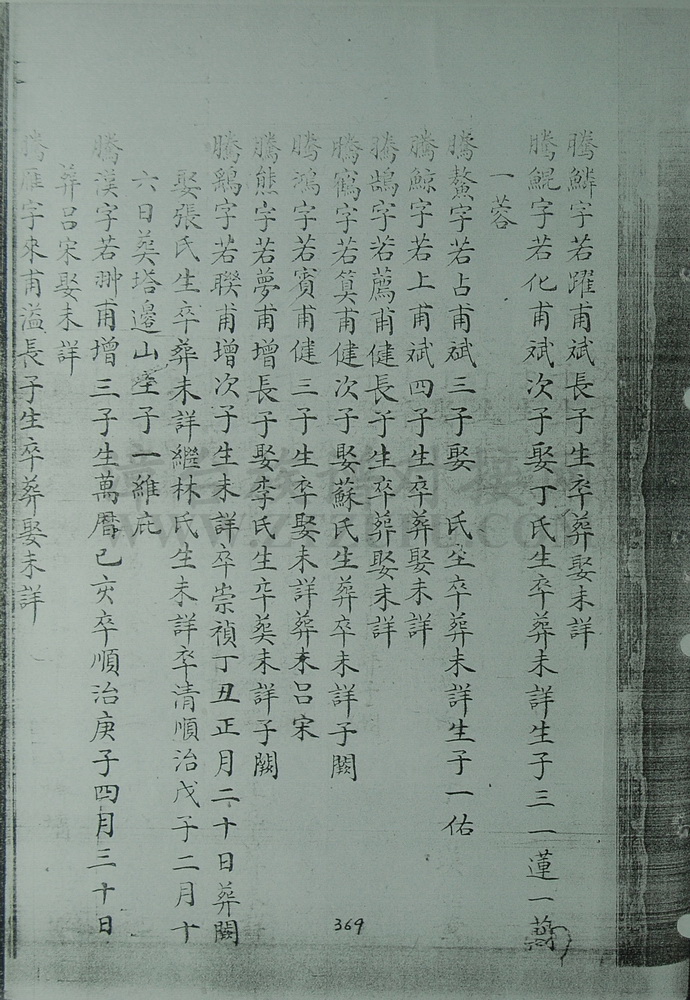 騰鱗字若躍甫斌長子生卒葬娶未詳
騰鯤字若化甫斌次子娶丁氏生卒葬未詳生子三一蓮一
一蓉
騰鰲字若占甫斌三子娶 氏生卒葬未詳生子一佑
騰鯨字若上甫斌四子生卒葬娶未詳
騰鵠字若薦甫健長子生卒葬娶未詳
騰鶱字若算甫健次子娶蘇氏生葬卒未詳子闕
騰鴻字若賓甫健三子生卒娶未詳葬未呂宋
騰熊字若夢甫增長子娶李氏生卒葬未詳子闕
騰鷄字若聯甫增次子生未詳卒崇禎丁丑正月二十日葬闕
娶張氏生卒葬未詳繼林氏生未詳卒清順治戊子二月十
六日葬塔邊山生子一維庇
騰漢字若翀甫增三子生萬曆己亥卒順治庚子四月三十日
葬呂宋娶未詳
騰雁字來甫溢長子生卒葬娶未詳
369